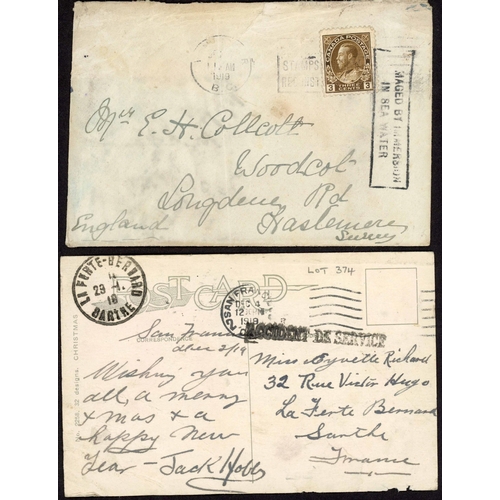 1919
B.C.
CANADA POSTAGE
3 THREE CENTS 3
MAGED BY IMMERSION
IN SEA WATER
Mr E. H. Collcott
Woodcot
Longdene Rd
Haslemere
England
Surrey
LA FERTE-BERNARD
29 -1
19
SARTHE
POST CARD
CORRESPONDENCE
LOT 374
SAN FRAN
DEC 4
12
1918
ACCIDENT DE SERVICE
CHRISTMAS
designs.
San Franc
Wishing you
all a merry
Xmas & a
happy New
Year - Jack Hobbs
Miss Yvette Richard
32 Rue Victor Hugo
La Ferte Bernard
Sarthe
France